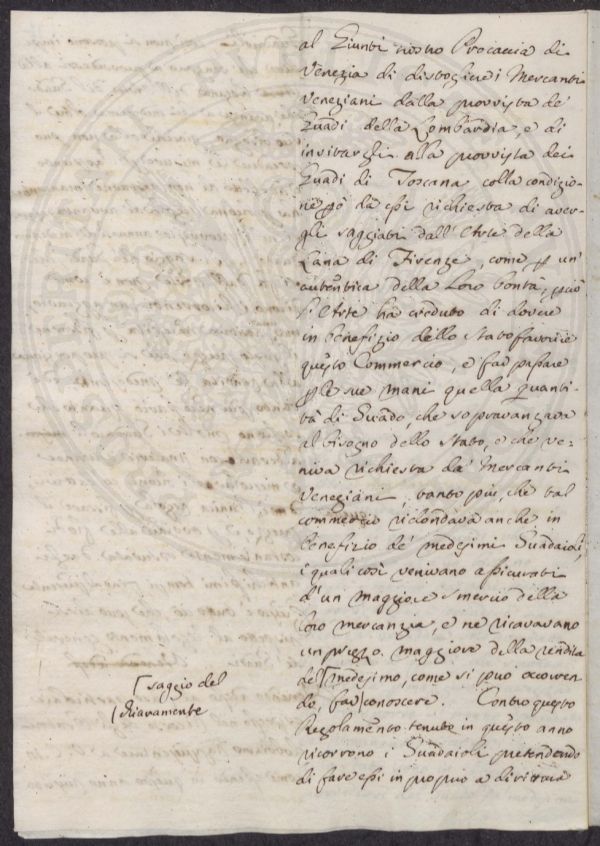 al Giunti nostro Procaccia di
Venezia di distogliere i Mercanti
Veneziani dalla provvista de
Guadi della Lombardia, e di
invitargli alla provvista dei
Guadi di Toscana colla condizio-
ne però da essi richiesta di aver-
gli saggiati dall'Arte della
Lana di Firenze, come p un'
autentica della Loro bontà, però
l'Arte ha creduto di dovere
in benefizio dello Stato favorire
questo Commercio, e far passare
p le sue mani quella quanti-
tà di Guado, che sopravanzava
al bisogno dello Stato, e che ve-
niva richiesta da' Mercanti
Veneziani, tanto più, che tal
commercio ridondava anche in
benefizio de' medesimi Guadaioli,
i quali così venivano assicurati
d'un maggiore smercio della
loro mercanzia, e ne ricavavano
un prezzo maggiore della vendita
del medesimo, come si può occorren-
do, far conoscere. Contro questo
Regolamento tenuto in questo anno
ricorrono i Guadaioli pretendendo
di fare essi in proprio a dirittura
saggio del
chiaramente